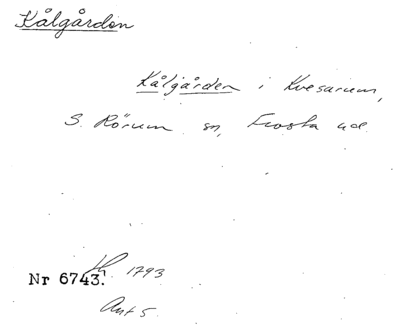 Kålgården
Kålgården i Kvesarum,
S. Rörum sn, Frosta hd.
Nr 6743. 1793
Ant 5.